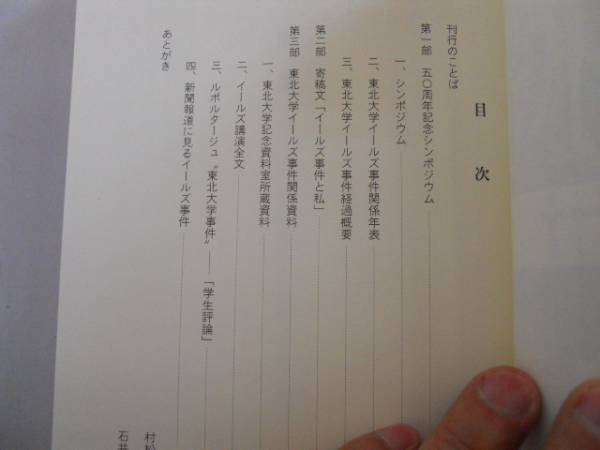 目次
刊行のことば
第一部 五〇周年記念シンポジウム
一、シンポジウム
二、東北大学イールズ事件関係年表
三、東北大学イールズ事件経過概要
第二部 寄稿文「イールズ事件と私」
第三部 東北大学イールズ事件関係資料
一、東北大学記念資料室所蔵資料
二、イールズ講演全文
三、ルポルタージュ〝東北大学事件〟――「学生評論」
四、新聞報道に見るイールズ事件
あとがき
村松
石井